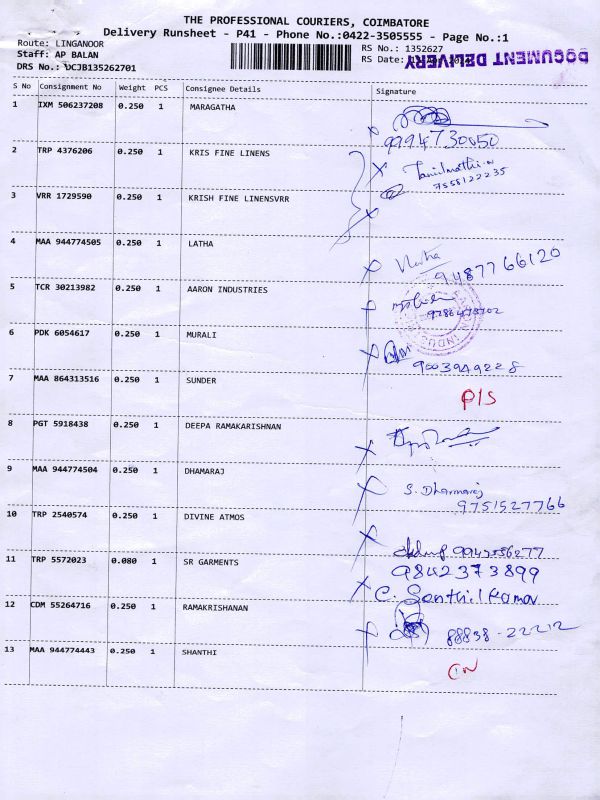 THE PROFESSIONAL COURIERS, COIMBATORE
Delivery Runsheet - P41 - Phone No.:0422-3505555 - Page No.:1
Route: LINGANOOR
RS No.: 1352627
Staff: AP BALAN
RS Date:
DOCUMENT DELIVERY
DRS No.: DCJB135262701
S No Consignment No Weight PCS Consignee Details Signature
1 IXM 506237208 0.250 1 MARAGATHA
9994730050
2 TRP 4376206 0.250 1 KRIS FINE LINENS
Tamilmathi
7558122235
3 VRR 1729590 0.250 1 KRISH FINE LINENSVRR
4 MAA 944774505 0.250 1 LATHA
Latha
9487766120
5 TCR 30213982 0.250 1 AARON INDUSTRIES
6 PDK 6054617 0.250 1 MURALI
9003949228
7 MAA 864313516 0.250 1 SUNDER
P/S
8 PGT 5918438 0.250 1 DEEPA RAMAKARISHNAN
9 MAA 944774504 0.250 1 DHAMARAJ
S. Dharmaraj
9751527766
10 TRP 2540574 0.250 1 DIVINE ATMOS
11 TRP 5572023 0.080 1 SR GARMENTS
9842373899
C. Senthil Kumar
12 CDM 55264716 0.250 1 RAMAKRISHANAN
88838-22212
13 MAA 944774443 0.250 1 SHANTHI